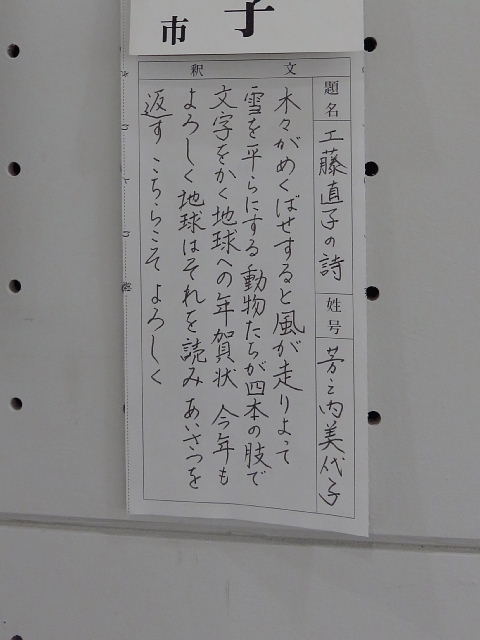 子
市
釈文
題名 工藤直子の詩
姓号 芳之内美代子
木々がめくばせすると風が走りよって
雪を平らにする動物たちが四本の肢で
文字をかく地球への年賀状 今年も
よろしく地球はそれを読みあいさつを
返す こちらこそよろしく